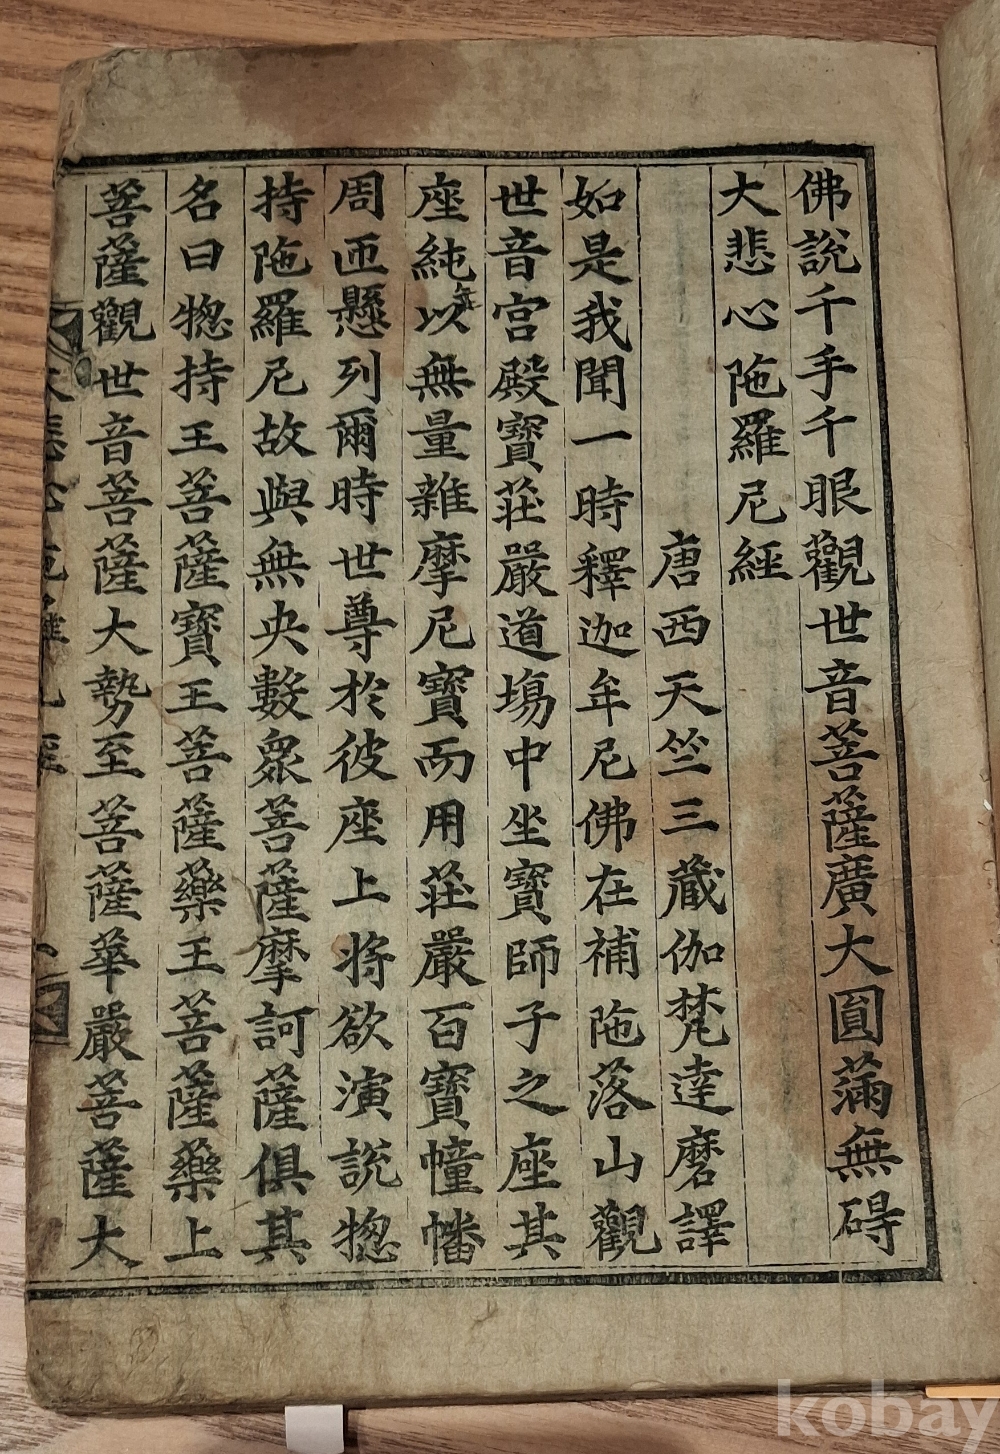 佛說千手千眼觀世音菩薩廣大圓滿無碍
大悲心陁羅尼經
唐西天竺三藏伽梵達磨譯
如是我聞一時釋迦牟尼佛在補陁落山觀
世音宮殿寶莊嚴道場中坐寶師子之座其
座純以無量雜摩尼寶而用莊嚴百寶幢幡
周匝懸列爾時世尊於彼座上將欲演說摠
持陁羅尼故與無央數衆菩薩摩訶薩俱其
名曰摠持王菩薩寶王菩薩藥王菩薩藥上
菩薩觀世音菩薩大勢至菩薩華嚴菩薩大
kobay